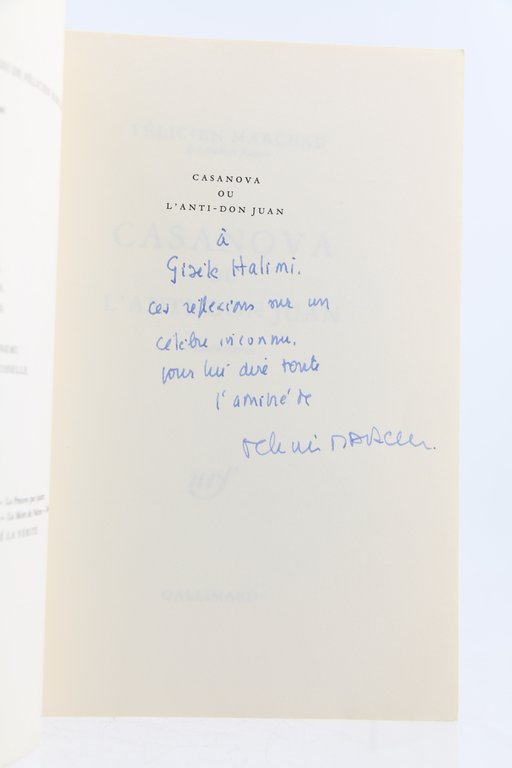 CASANOVA
OU
L'ANTI-DON JUAN
à
Gisèle Halimi.
ces réflexions sur un
célèbre inconnu,
pour lui dire toute
l'amitié de
Félicien MARCEAU
FÉLICIEN MARCEAU
CASANOVA
L'ANTI-DON JUAN
nrf
GALLIMARD
LA VÉRITÉ